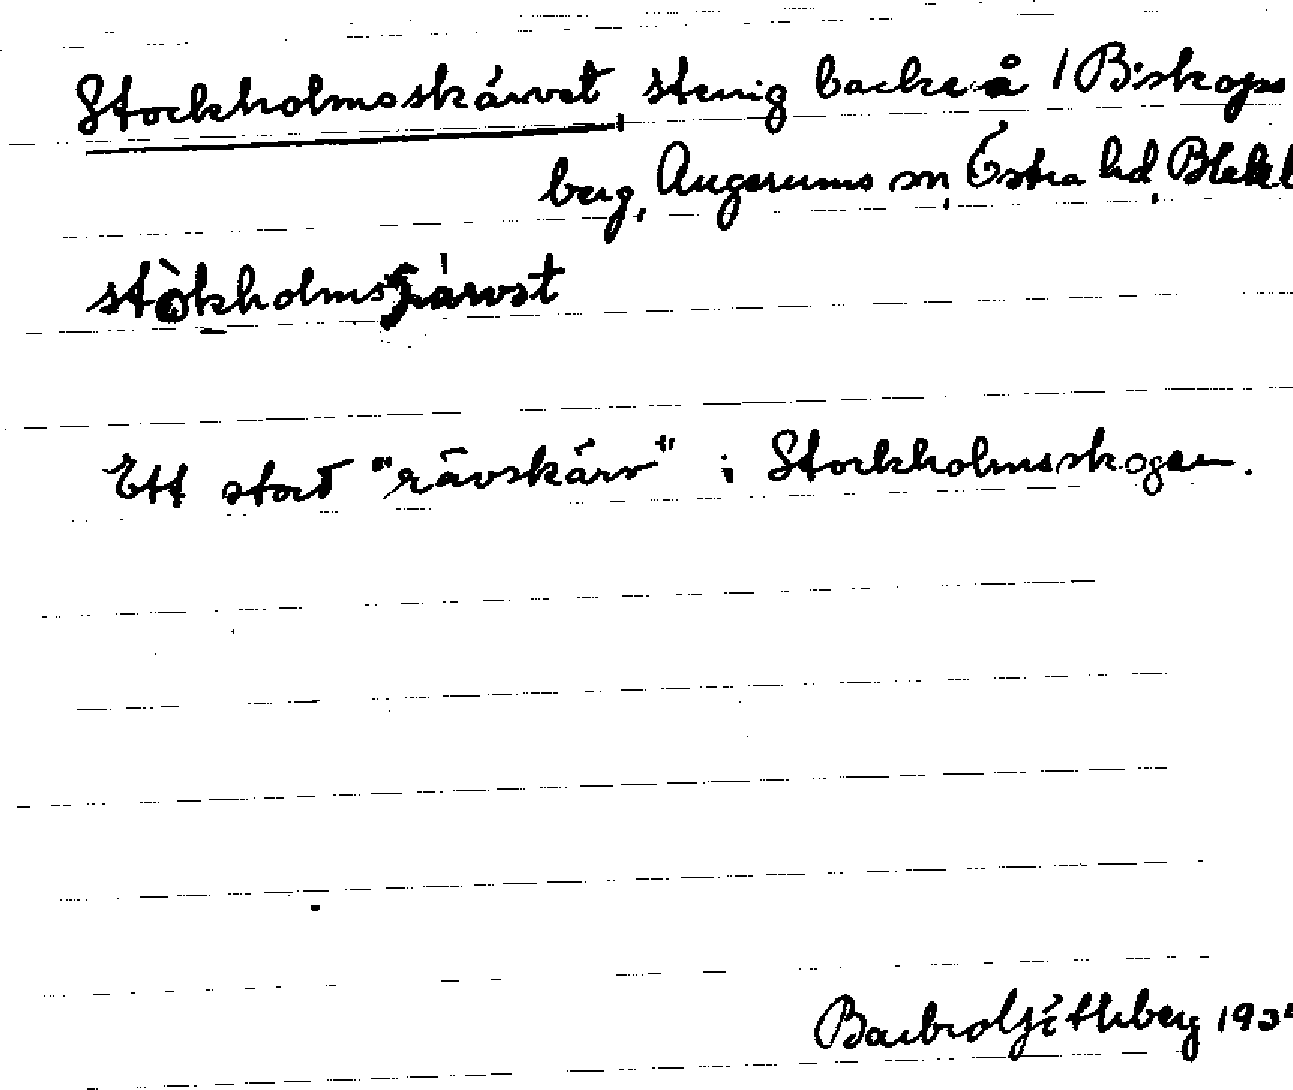 Stockholmsskärvet, stenig backe å 1 Biskops
berg, Augerums sn, Östra hd, Blek
stòkholms
Ett stort "rävskärv" i Stockholmsskogen.
Barbro Götlberg